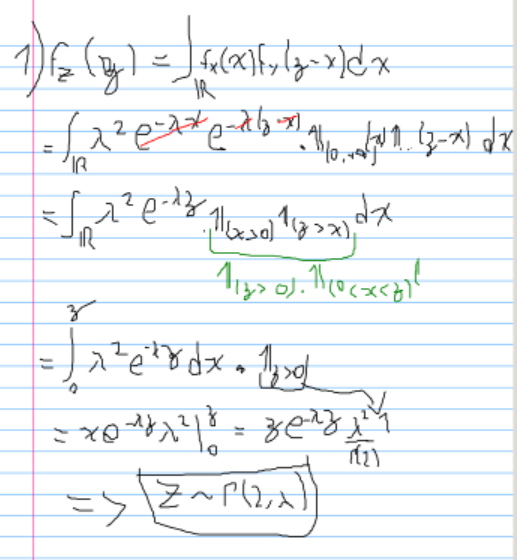 1) f_Z(z) = ∫_ℝ f_X(x) f_Y(z-x) dx
= ∫_ℝ λ² e^{-λx} e^{-λ(z-x)} · 𝟙_{(0,+∞)}(x) 𝟙_{..}(z-x) dx
= ∫_ℝ λ² e^{-λz} · 𝟙_{(x>0)} 𝟙_{(z>x)} dx
𝟙_{(z>0)} · 𝟙_{(0<x<z)}
= ∫_0^z λ² e^{-λz} dx · 𝟙_{z>0}
= x e^{-λz} λ² |_0^z = z e^{-λz} λ²/Γ(2) 𝟙
=> Z ~ Γ(2, λ)